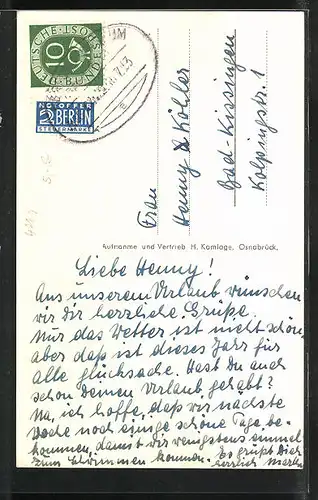 DEUTSCHE BUNDESPOST
10
UM
7.53
a
NOTOPFER
2 BERLIN
STEUERMARKE
Frau
Henny Köhler
Bad-Kissingen
Kolpingstr. 1
Aufnahme und Vertrieb H. Kamlage, Osnabrück.
Liebe Henny!
Aus unserem Urlaub wünschen
wir Dir herzliche Grüße.
Nur das Wetter ist nicht schön,
aber daß ist dieses Jahr für
alle glücksache. Hast Du auch
schon Deinen Urlaub gehabt?
Na, ich hoffe, daß wir nächste
Woche noch einige schöne Tage be-
kommen, damit wir wenigstens einmal
zum Schwimmen kommen. Es grüßt Dich
herzlich